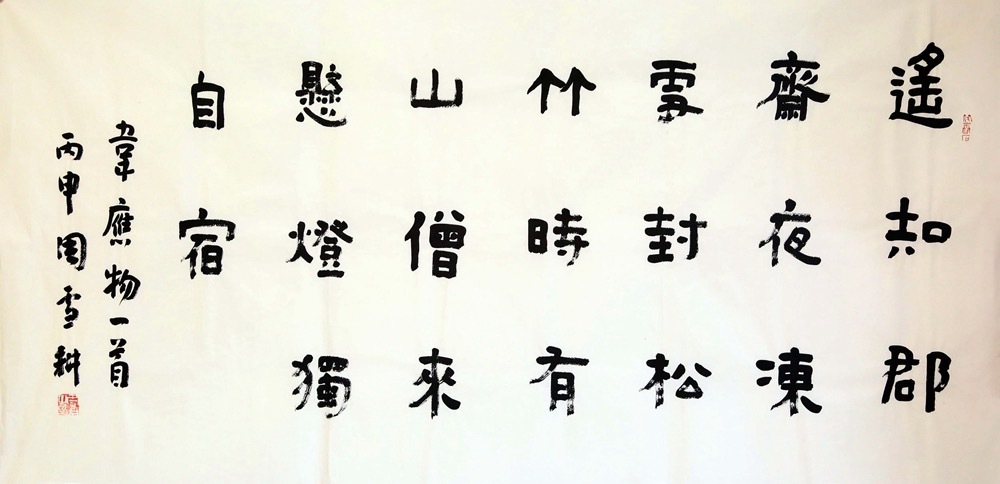 遙知郡
齋夜凍
雪封松
竹時有
山僧來
懸燈獨
自宿
韋應物一首
丙申周雪耕